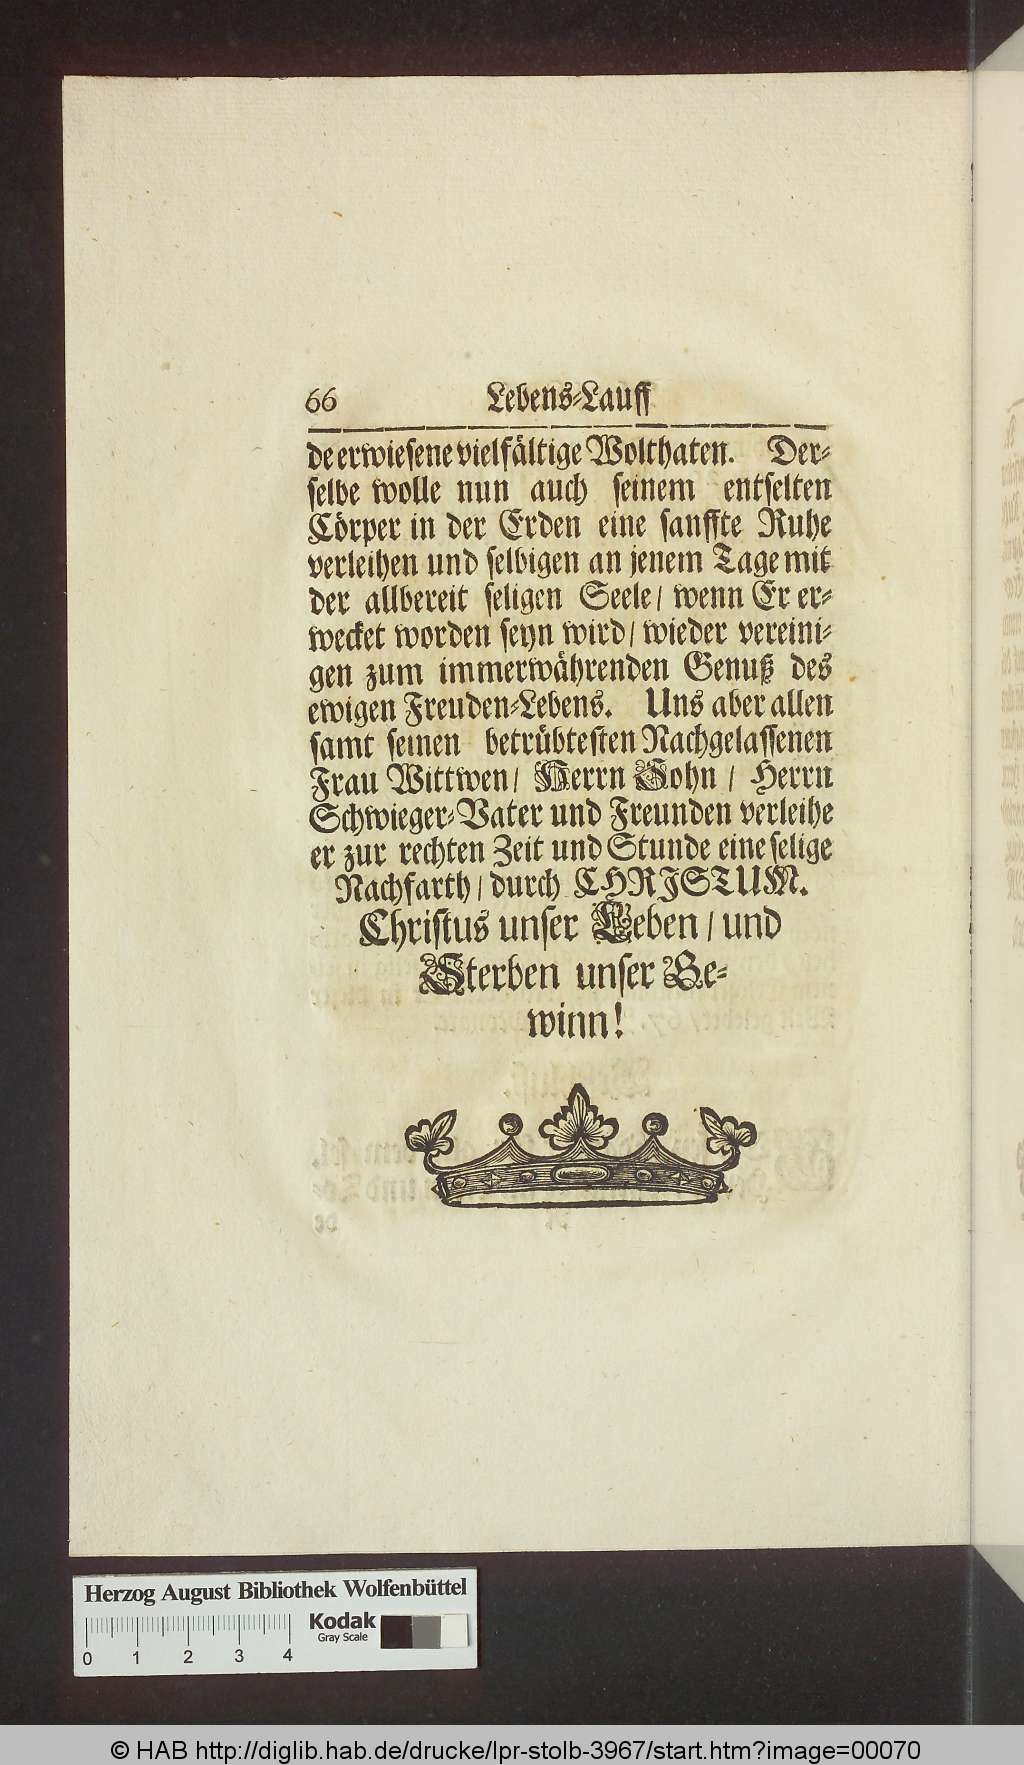 66 Lebens-Lauff
de erwiesene vielfältige Wolthaten. Der-
selbe wolle nun auch seinem entselten
Cörper in der Erden eine sanffte Ruhe
verleihen und selbigen an jenem Tage mit
der allbereit seligen Seele/ wenn Er er-
wecket worden seyn wird/ wieder vereini-
gen zum immerwährenden Genuß des
ewigen Freuden-Lebens. Uns aber allen
samt seinen betrübtesten Nachgelassenen
Frau Wittwen/ Herrn Sohn/ Herrn
Schwieger-Vater und Freunden verleihe
er zur rechten Zeit und Stunde eine selige
Nachfarth/ durch CHRISTUM.
Christus unser Leben/ und
Sterben unser Ge-
winn!
Herzog August Bibliothek Wolfenbüttel
Kodak
Gray Scale
0 1 2 3 4
© HAB http://diglib.hab.de/drucke/lpr-stolb-3967/start.htm?image=00070